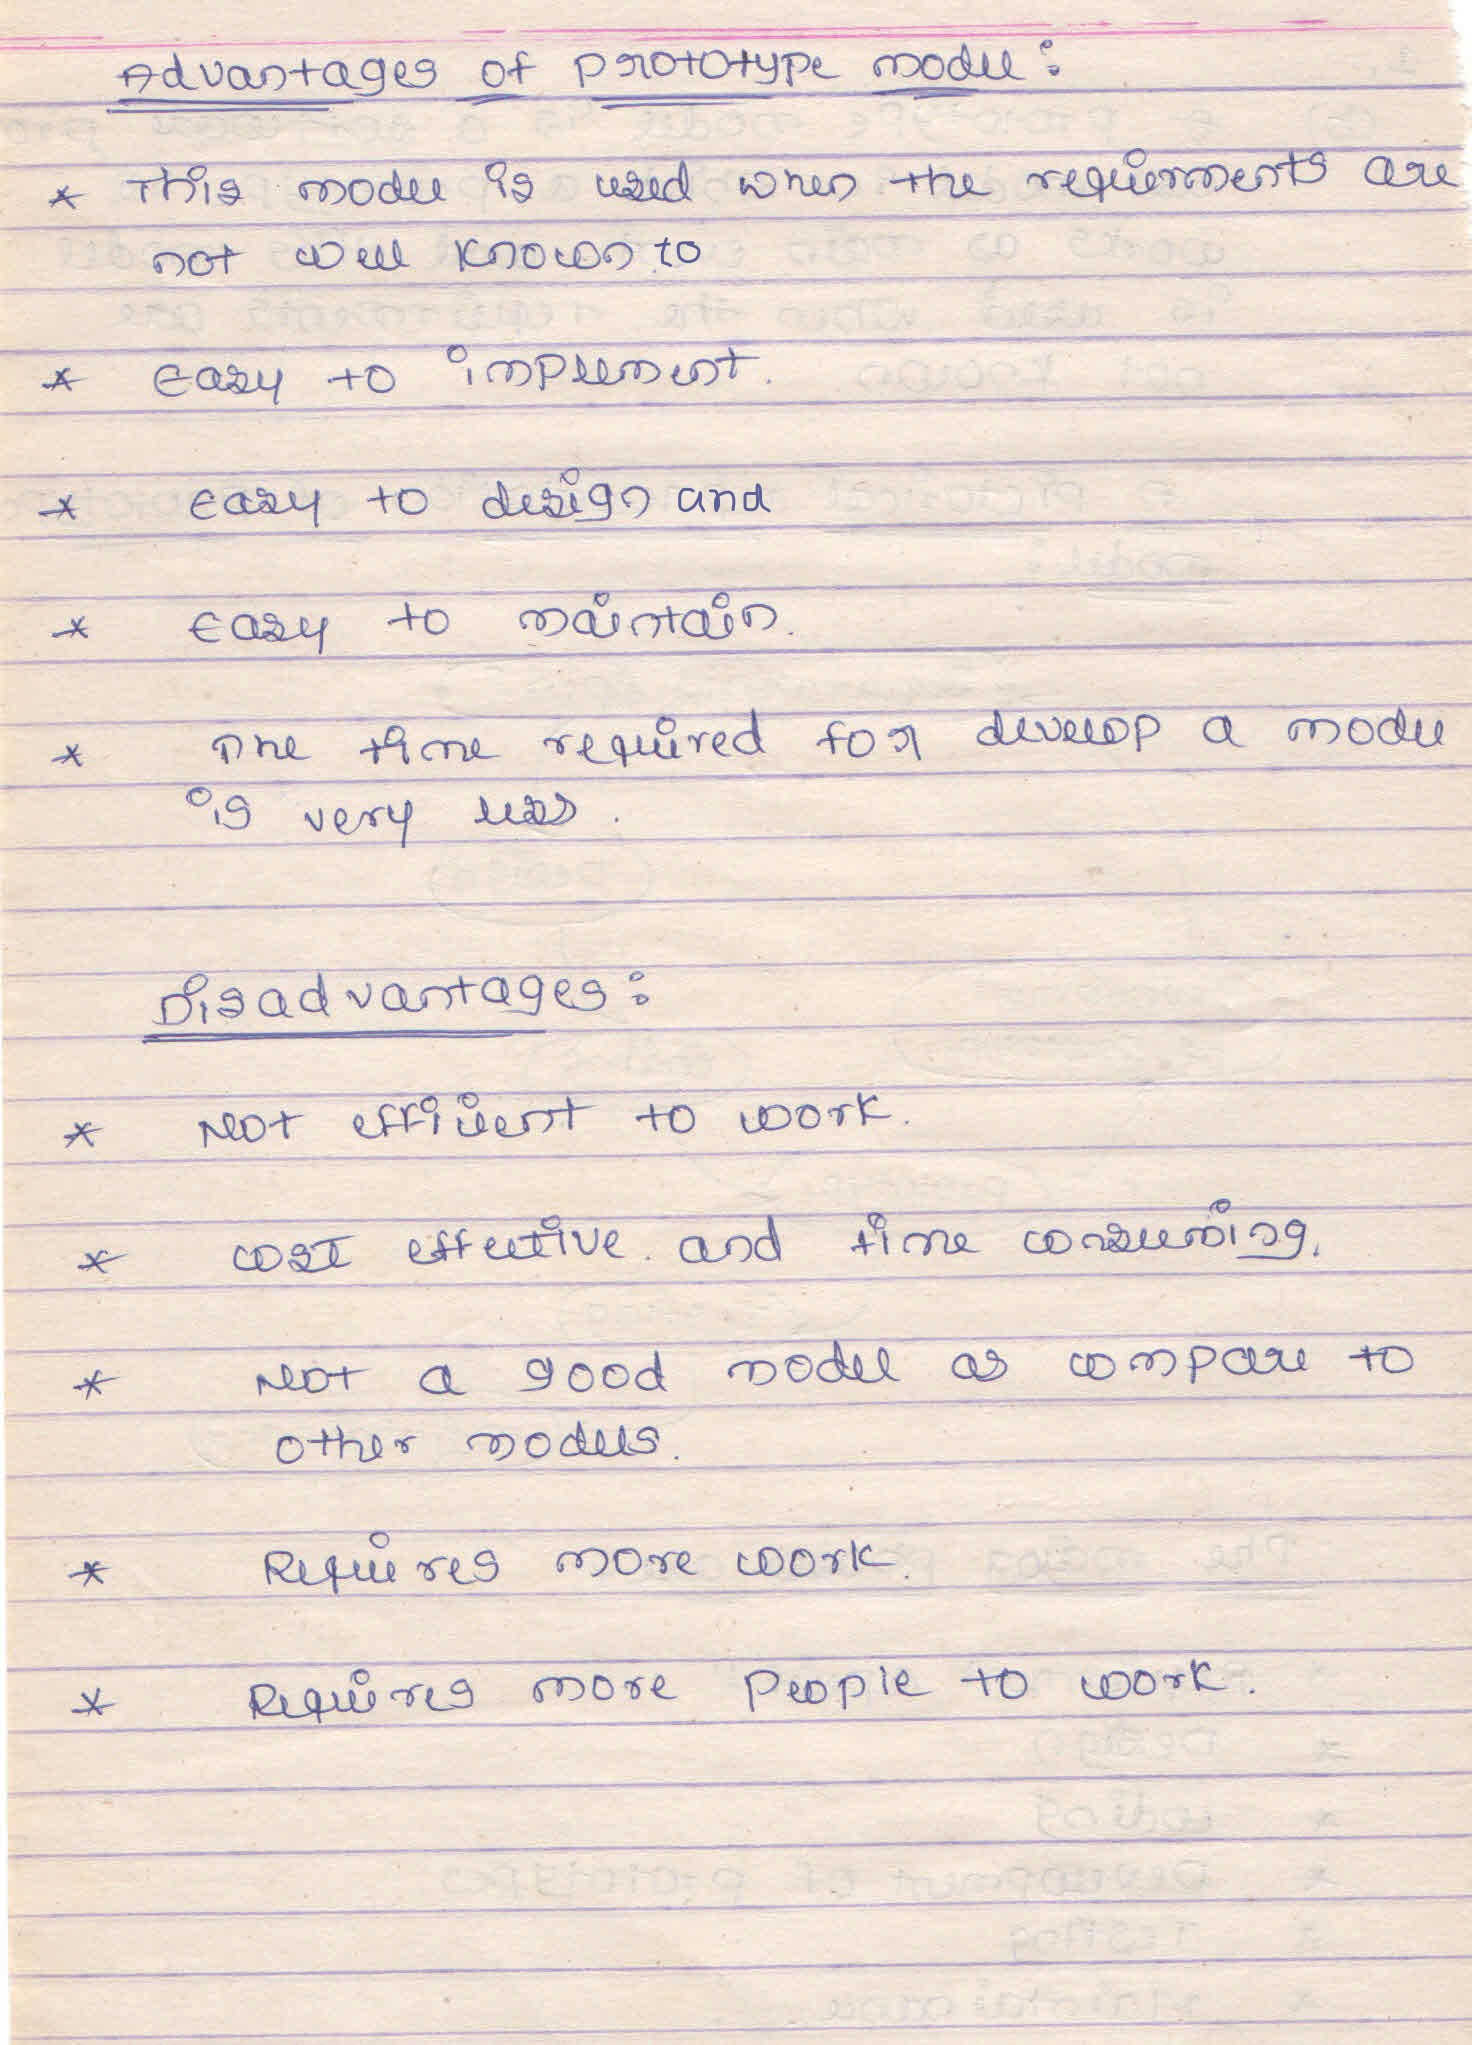 Advantages of prototype model:
* This model is used when the requirments are
not well known to
* Easy to implement.
* Easy to design and
* Easy to maintain.
* The time required for develop a model
is very less.
Disadvantages:
* Not efficient to work.
* cost effective and time consuming.
* Not a good model as compare to
other models.
* Requires more work.
* Requires more people to work.